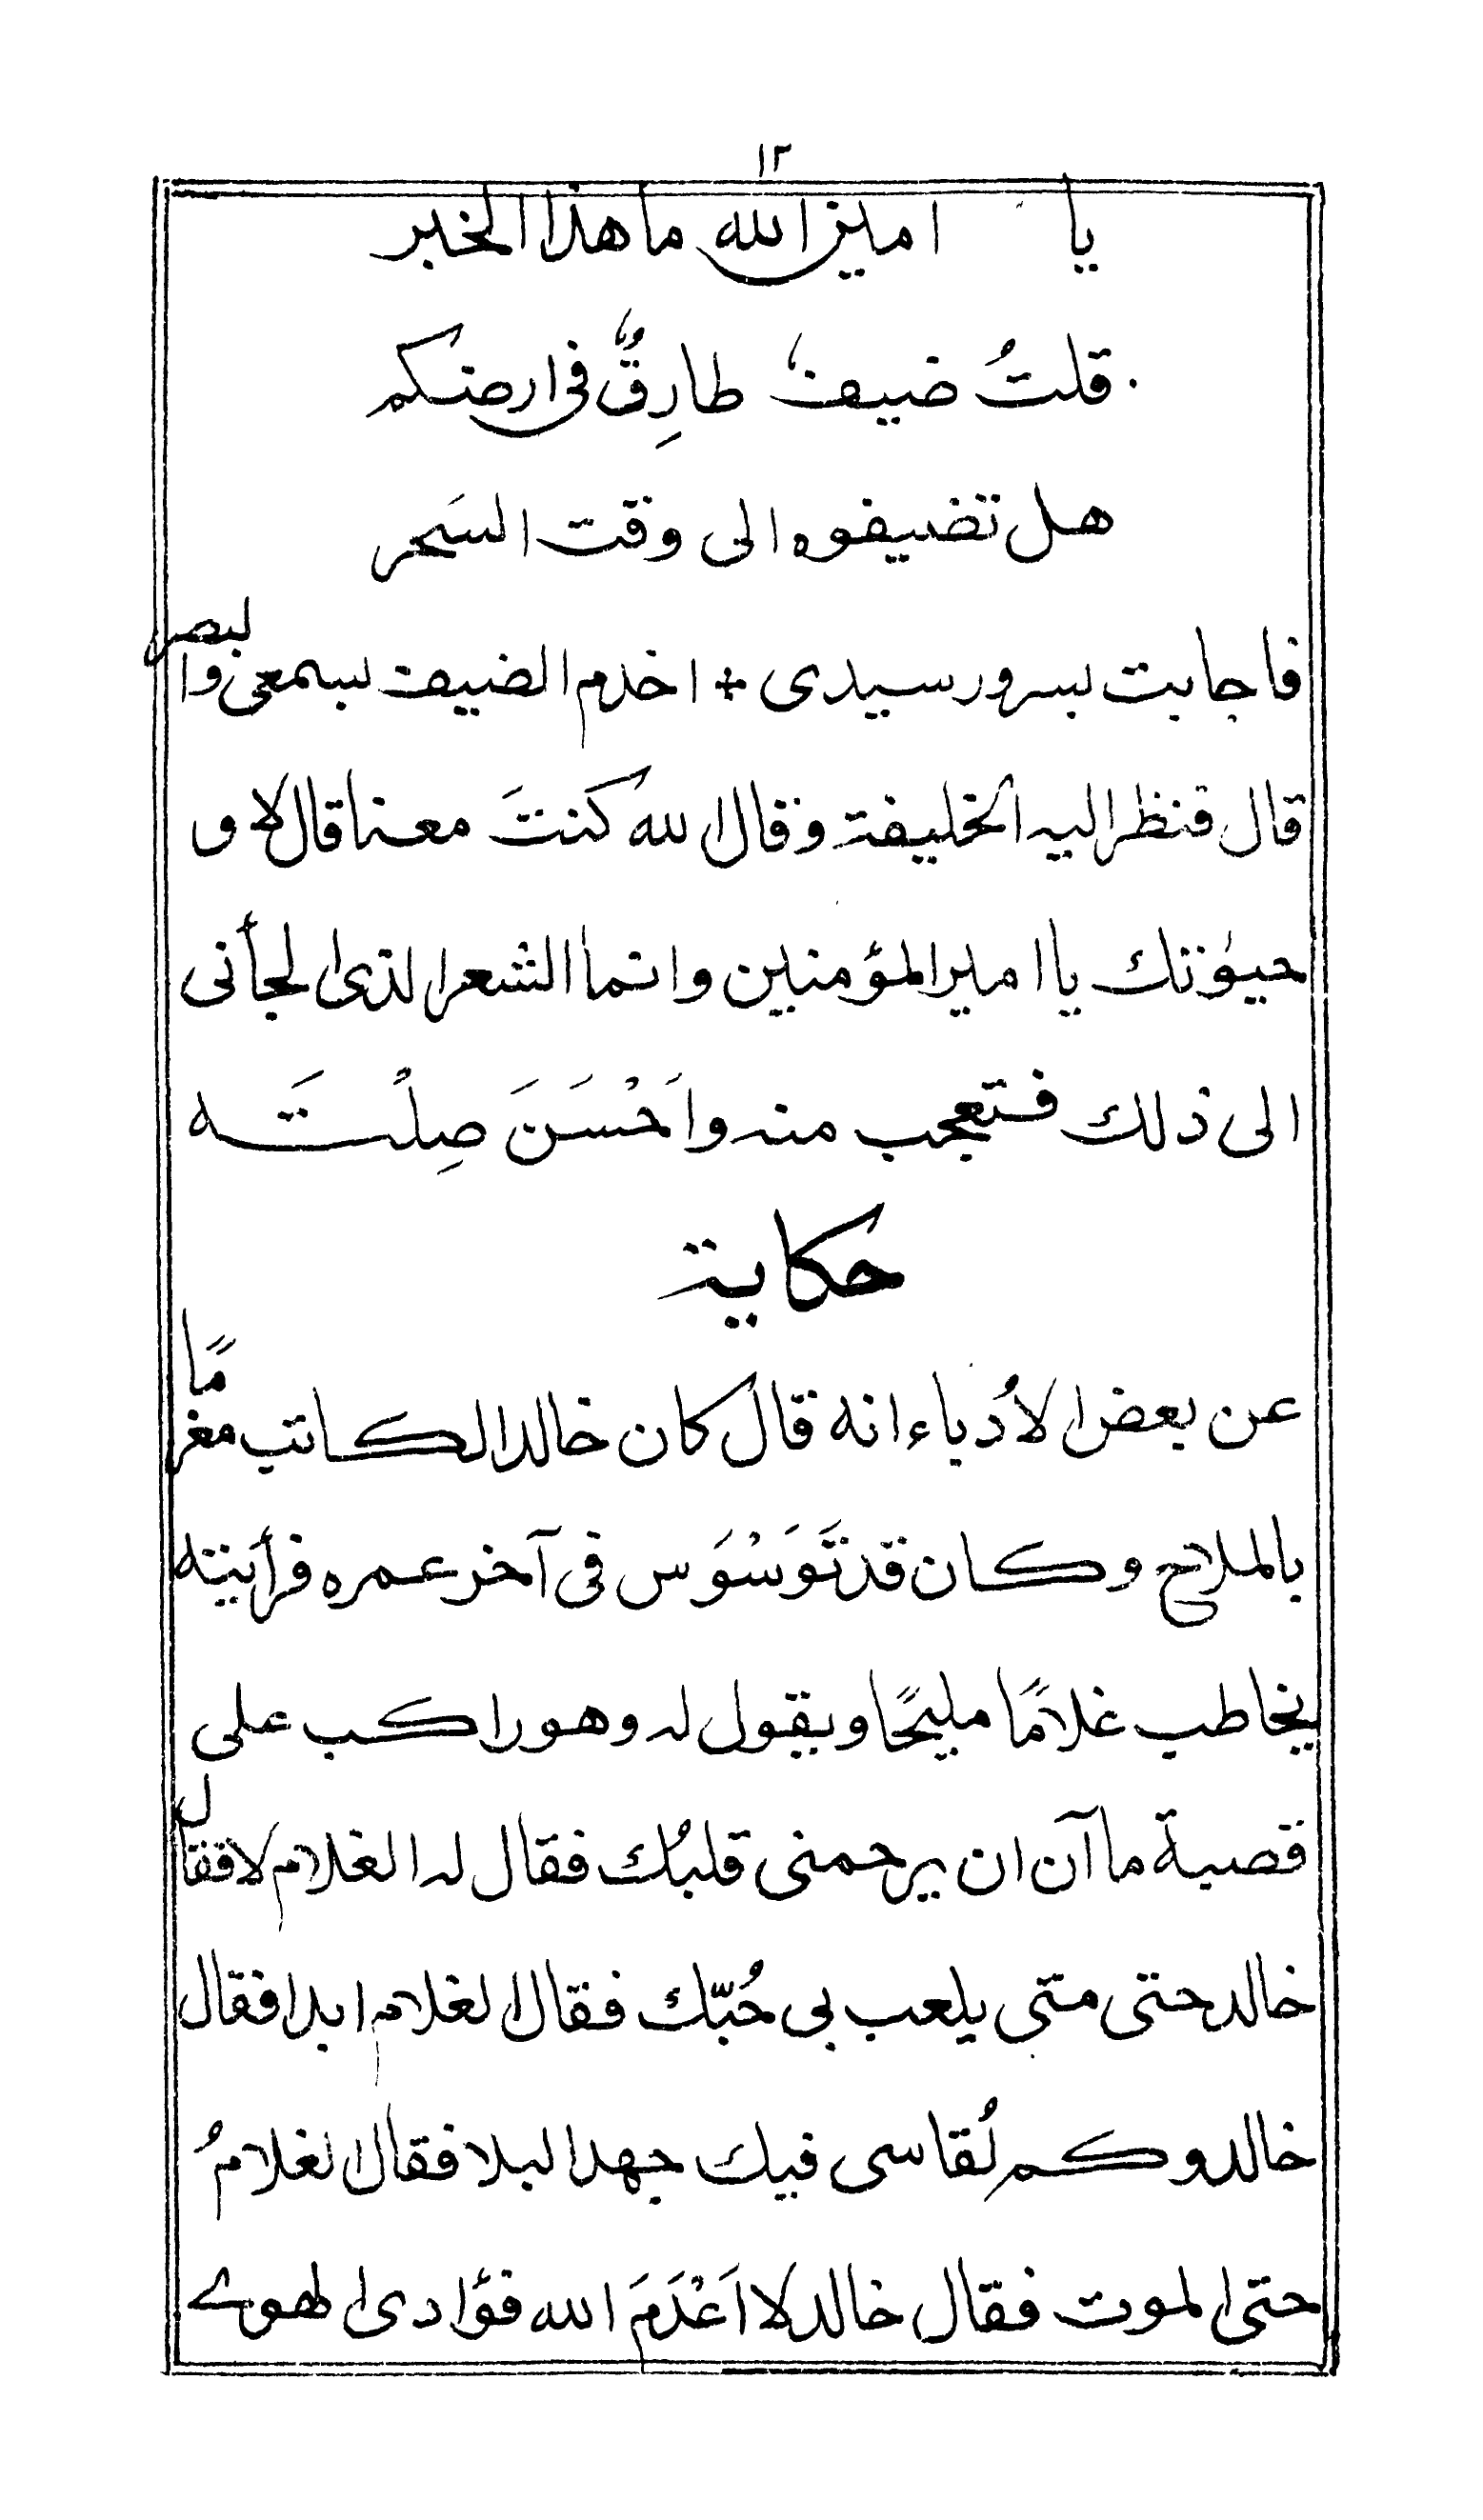 ١٢
يا امين الله ما هذا الخبر
قلتُ ضيف طارِقٌ فى ارضكم
هل تضيفوه الى وقت السَحر
فاجابت بسرور سيدى + اخدم الضيف بسمعى والبصر
قال فنظر اليه الخليفة وقال الله كنتَ معنا قال لا و
حيوٰتك يا امير المؤمنين وانما الشعر الذى الجأنى
الى ذلك فتعجب منه واَحْسَنَ صِلَتَه
حكاية
عن بعض الاُدباء انه قال كان خالد الكاتب مغرمًا
بالملاح وكان قد تَوَسْوَس فى آخر عمره فرأيته
يخاطب غلامًا مليحًا ويقول له وهو راكب على
قصبة ما آن ان يرحمنى قلبُك فقال له الغلام لا فقال
خالد حتى متى يلعب بى حُبّك فقال الغلام ابدا فقال
خالد وكم اُقاسى فيك جهد البلا فقال الغلامُ
حتى الموت فقال خالد لا اَعْدَمَ الله فؤادى الهوے